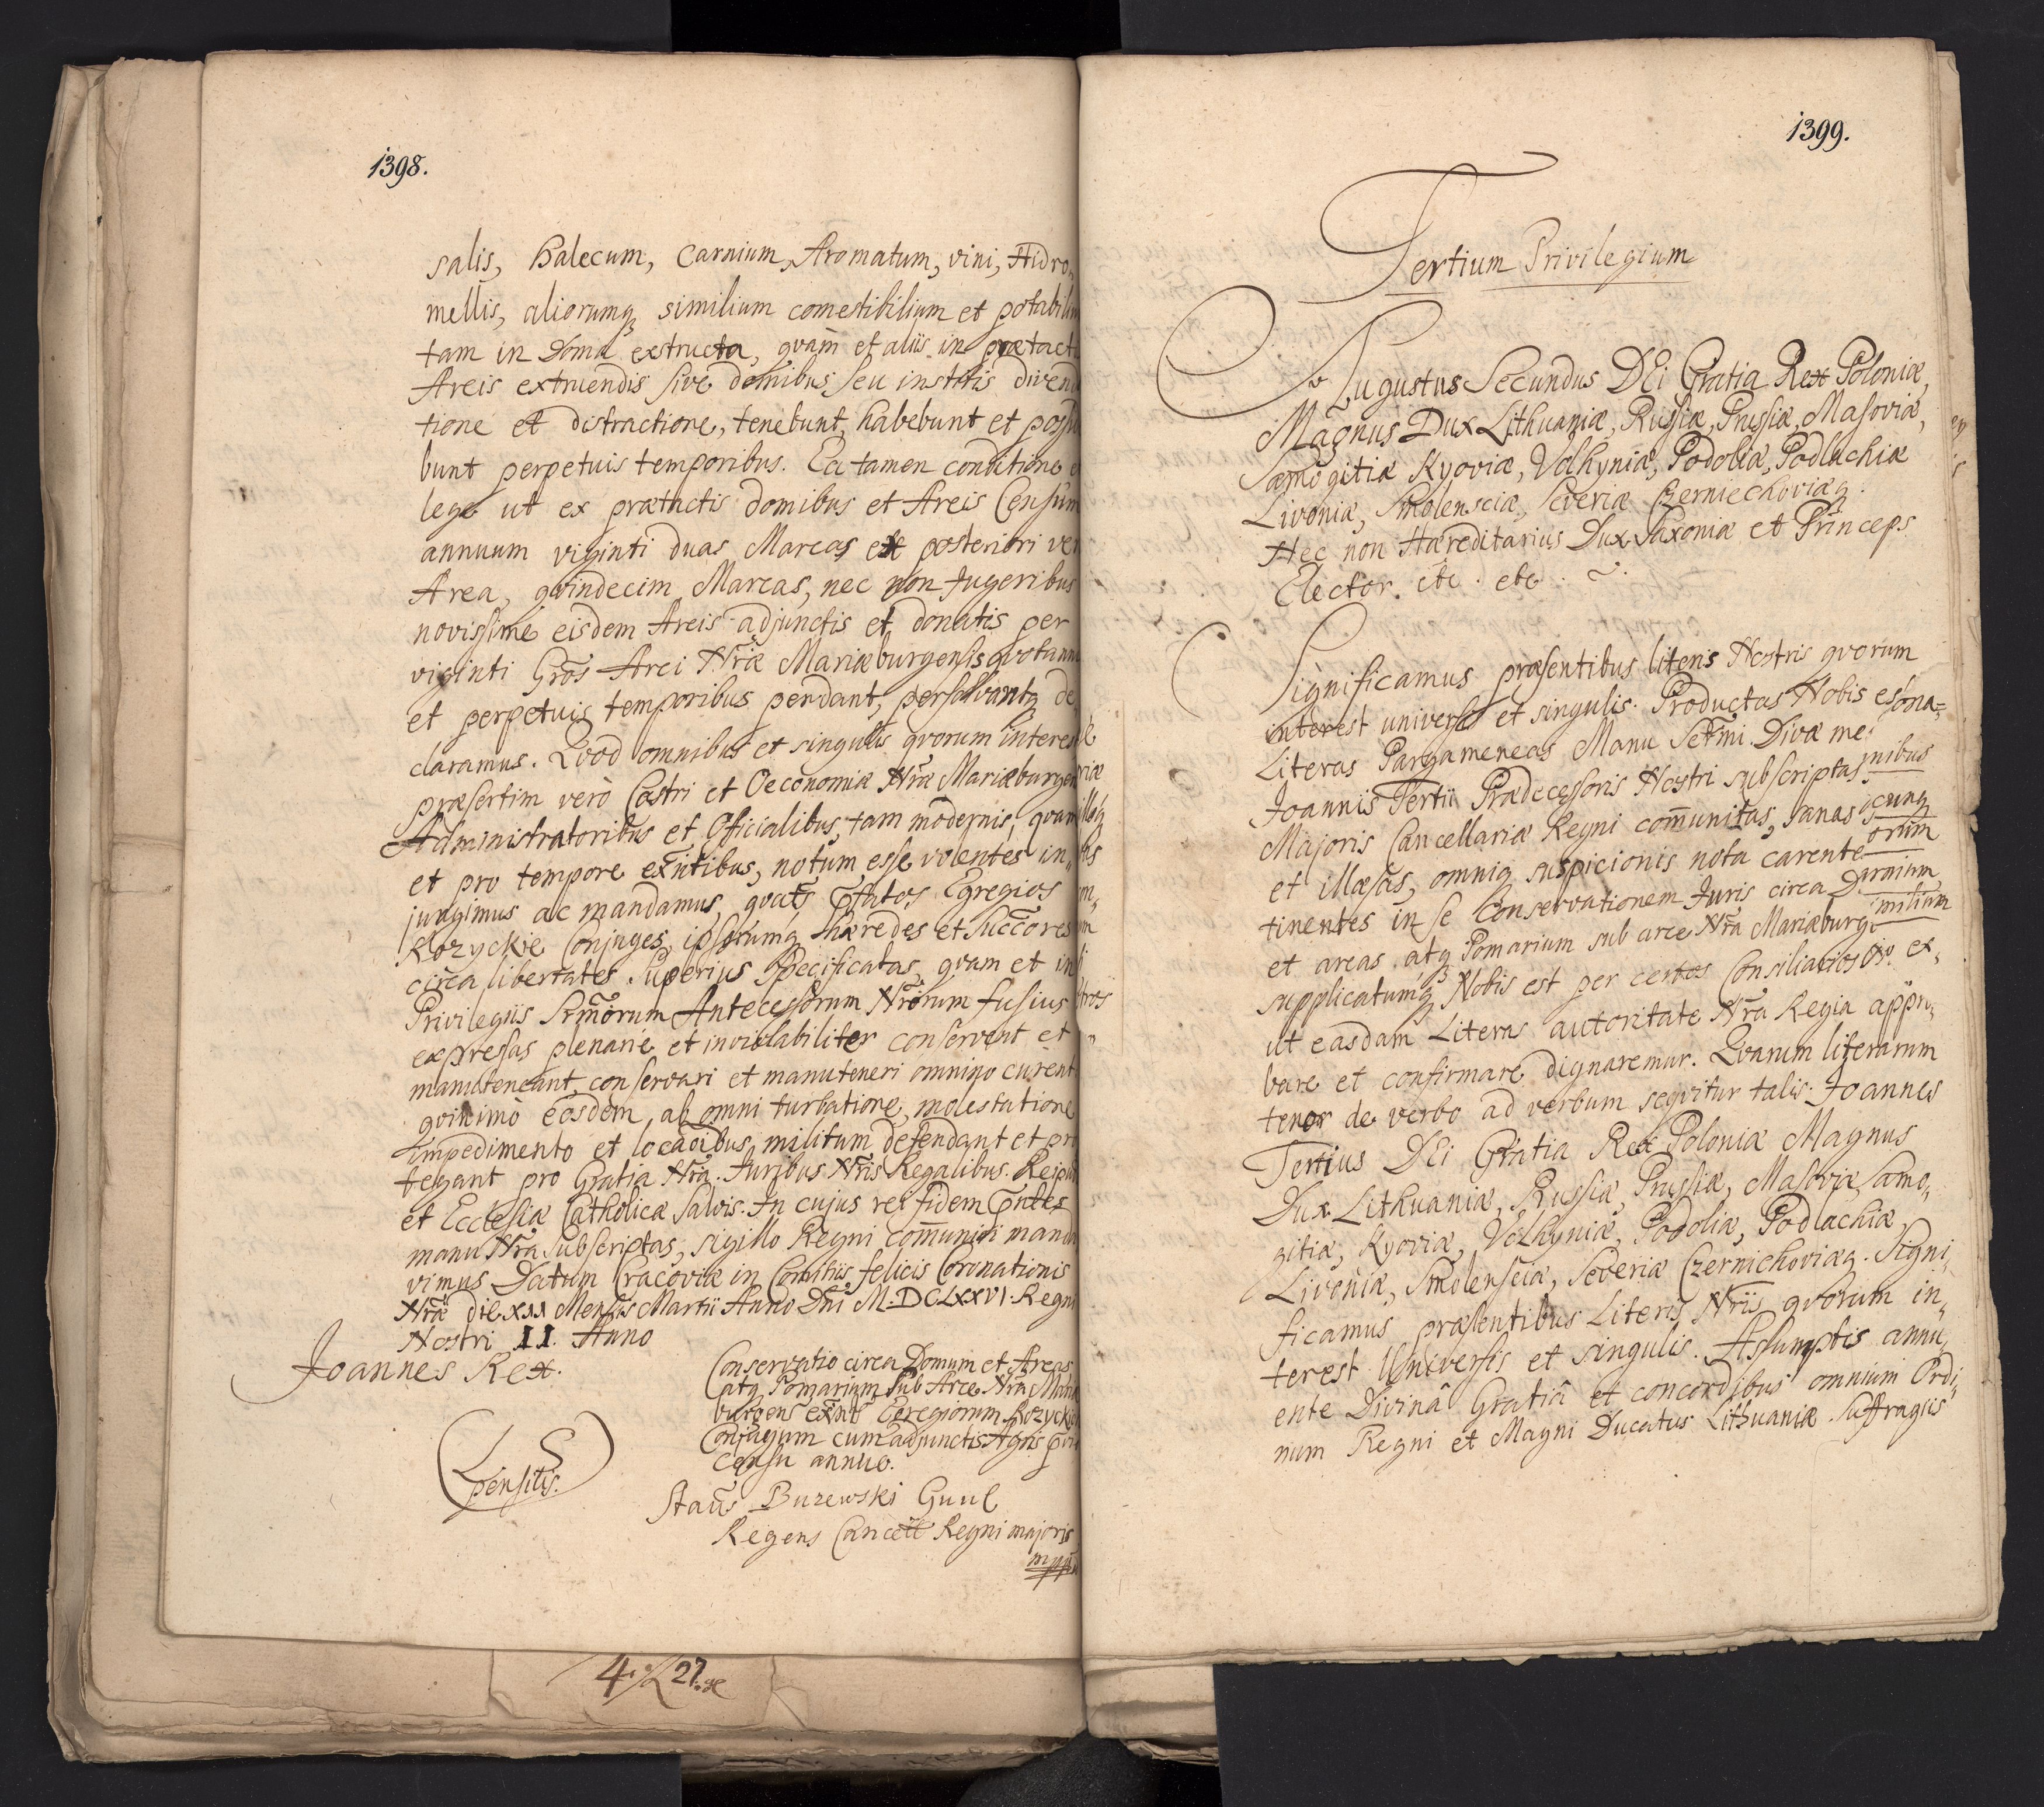 1398.
salis, halecum, Carnium, Aromatum, vini, Hidro„
mellis, aliorumq similium comestibilium et potabilium
tam in Domo exstructa, qvàm et aliis in prætactis
Areis extruendis sive domibus seu institis divendi
tione et distractione, tenebunt, habebunt et possid
bunt perpetuis temporibus. Ea tamen conditione et
lege ut ex prætactis domibus et Areis Censum
annuum viginti duas Marcas ex posteriori ver
Area, qvindecim Marcas, nec non Jugeribus
novissime eisdem Areis adjunctis et donatis per
viginti Gros̄ Arci Nr̄æ Mariæburgensis qvotann
et perpetuis temporibus pendant, persolvantq de
claramus. Qvod omnibus et singulis qvorum interest
præsertim verò Castri et Oeconomiæ Nr̄æ Mariæburgen
Administratoribus et Officialibus, tam modernis, qvam
et pro tempore exn̄tibus, notum esse volentes in„
jungimus ac mandamus, qvat̄s p̄fatos Egregios
Rozyckie Conjuges, ipsorumq hæredes et Succōres
circa libertates superius specificatas, qvam et in
Privilegiis Srm̄orum Antecessorum Nrōrum fusius
expressas plenarie et inviolabiliter conservent et
manuteneant, conservari et manuteneri omnino curent
qvinimò eosdem, ab omni turbatione, molestatione
impedimento et locaōibus militum defendant et pro
tegant pro Gratia Nr̄a. Juribus Nr̄is Regalibus. Reipub
et Ecclesiæ Catholicæ Salvis. In cujus rei fidem p̄ntes
manu Nr̄a subscriptas, sigillo Regni com̄uniri manda
vimus Datum Cracoviæ in Comitiis felicis Coronationis
Nr̄æ die XII Mensis Martii Anno Dn̄i M.DCLXXVI. Regni
Nostri II. Anno
Joannes Rex.
Conservatio circa Domum et Areas
atq Pomarium sub Arce Nr̄a Mariæ
burgens exn̄t Egregiorum Rozyckie
Conjugum cum adjunctis Agris pro
Censu annuo.
L S
pensilis.
Stan̄s Buzewski
Regens Cancell Regni majoris
mpp
4. 27.
1399.
Tertium Privilegium
Augustus Secundus DEi Gratia Rex Poloniæ,
Magnus Dux Lithuaniæ, Russiæ, Prussiæ, Masoviæ,
Samogitiæ Kyoviæ, Volhyniæ, Podoliæ, Podlachiæ
Livoniæ, Smolensciæ, Severiæ Czerniechoviæq.
Nec non Hæreditarius Dux Saxoniæ et Princeps
Elector. etc. etc.
Significamus præsentibus literis Nostris qvorum
interest universis et singulis. Productas Nobis esse
Literas Pargameneas Manu Serm̄i Divæ me„
Joannis Tertii Prædecessoris Nostri subscriptas
Majoris Cancellariæ Regni com̄unitas, sanas
et illæsas, omniq suspicionis nota carente
tinentes in se Conservationem Juris circa D
et areas atq Pomarium sub arce Nr̄a Mariæburg
supplicatumq Nobis est per certos Consiliarios
ut easdam Literas autoritate Nr̄a Regia appro„
bare et confirmare dignaremur. Qvarum literarum
tenor de verbo ad verbum seqvitur talis: Joannes
Tertius DEi Gratia Rex Poloniæ Magnus
Dux Lithuaniæ, Russiæ, Prussiæ, Masoviæ, Samo„
gitiæ, Kyoviæ, Volhyniæ, Podoliæ, Podlachiæ,
Livoniæ, Smolensciæ, Severiæ Czernichoviæq. Signi„
ficamus præsentibus Literis Nr̄is qvorum in„
terest Universis et singulis. Assumptis annu„
ente Divinâ Gratiâ et concordibus omnium Ordi„
num Regni et Magni Ducatus Lithuaniæ Suffragiis